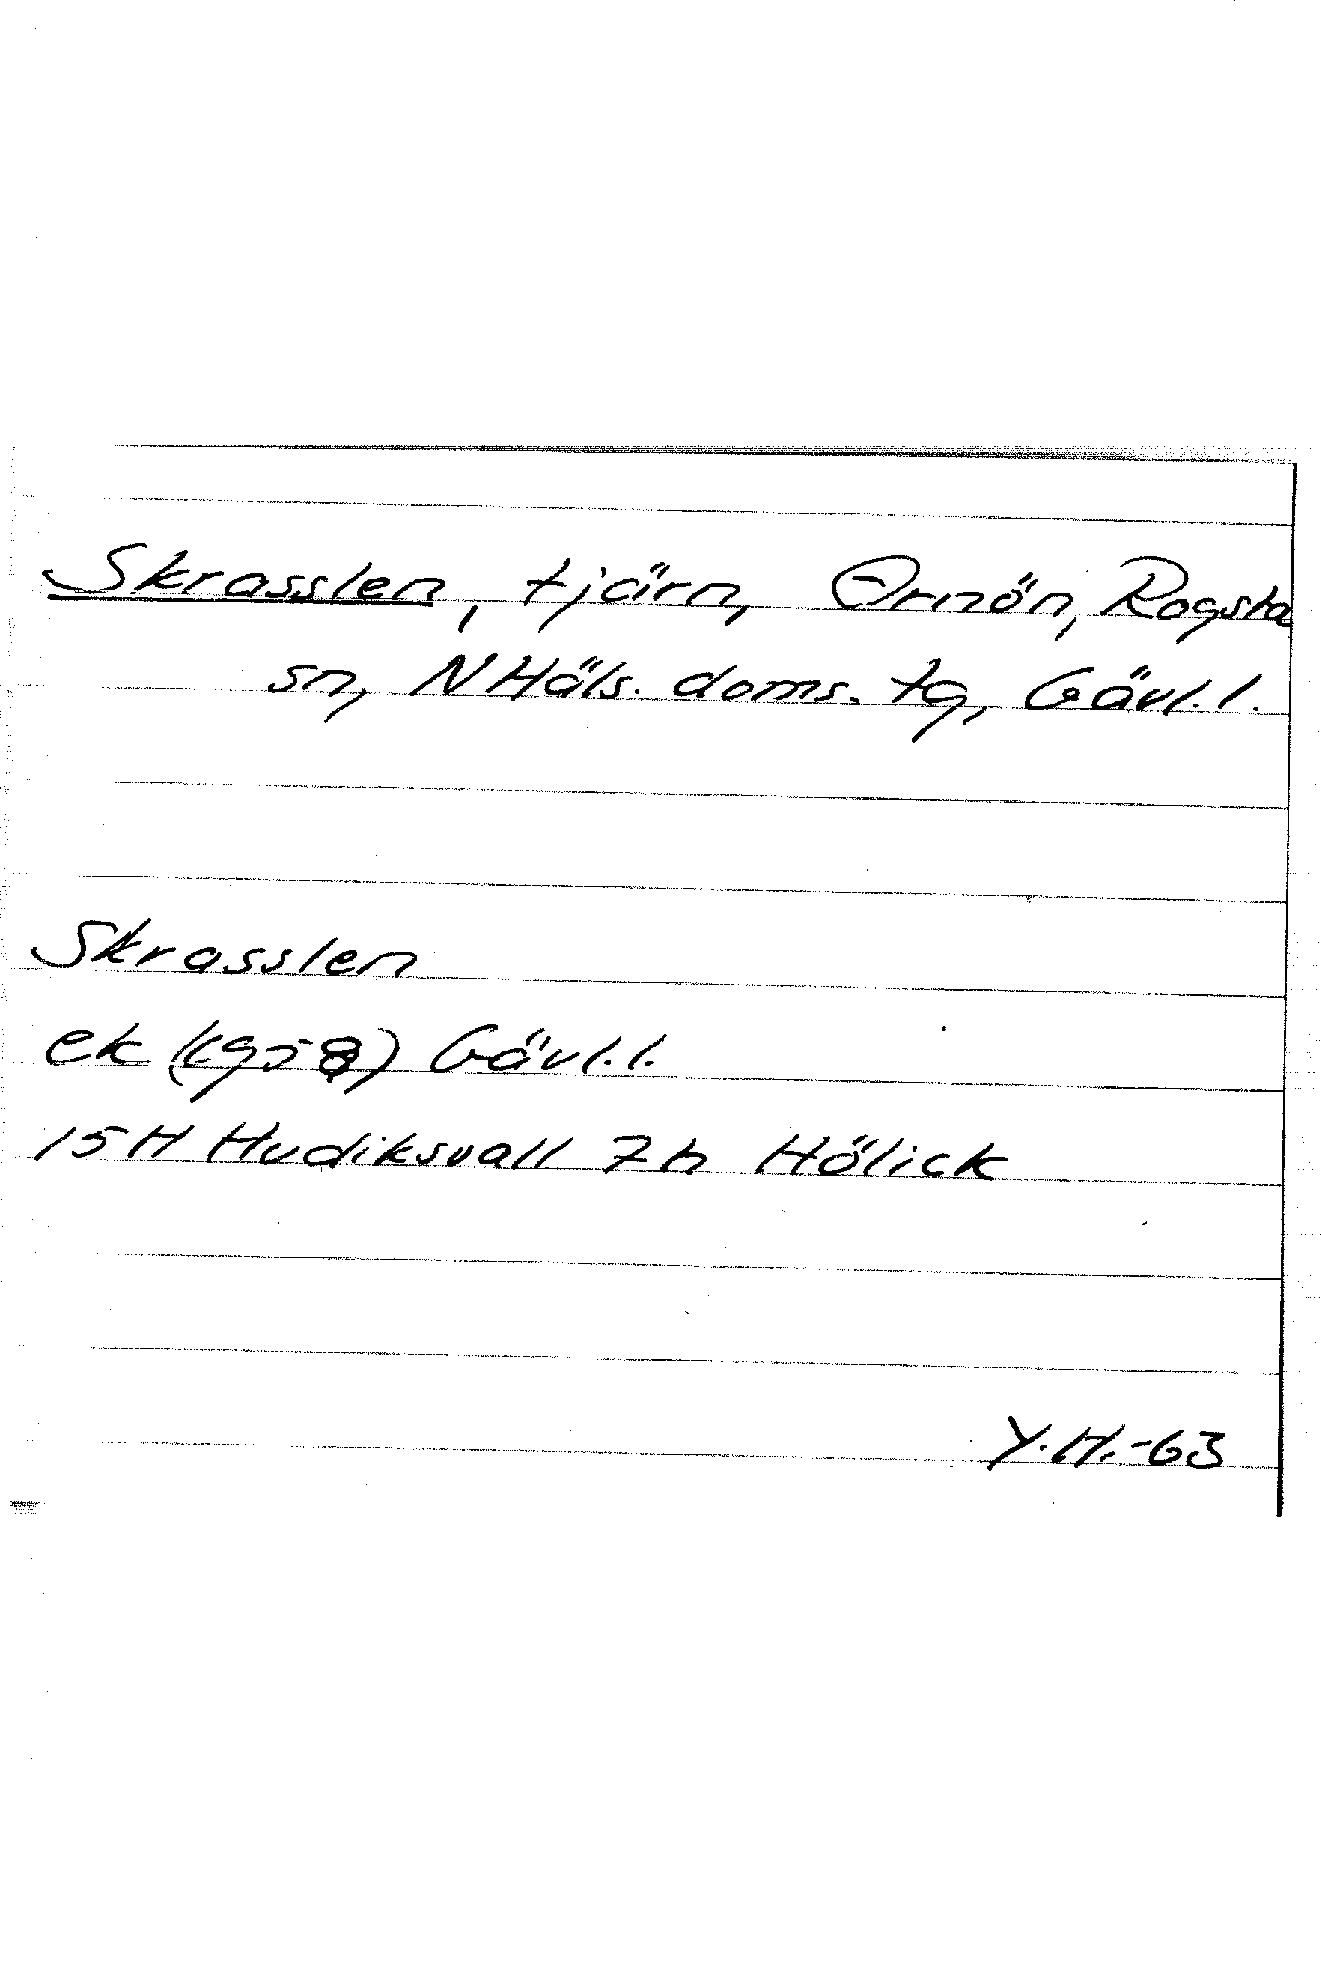 Skrasslen, tjärn, Ornön, Rogsta
sn, NHäls. doms. tg, Gävl. l.
Skrasslen
ek (1958) Gävl. l.
15H Hudiksvall 7h Hölick
Y.H.-63